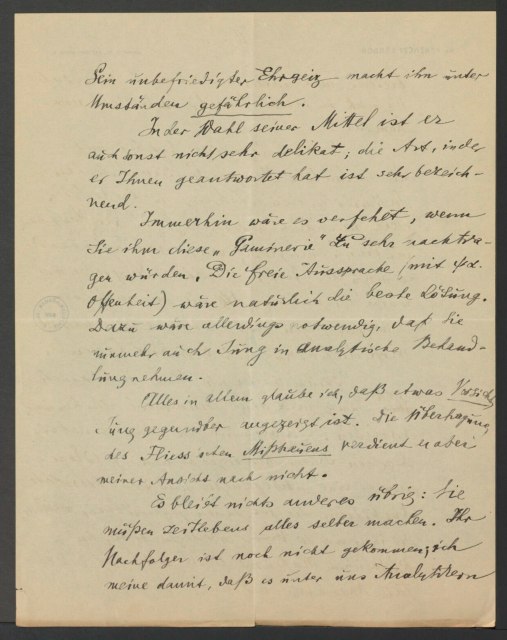 Sein unbefriedigter Ehrgeiz macht ihn unter
Umständen gefährlich.
In der Wahl seiner Mittel ist er
auch sonst nicht sehr delikat; die Art, in der
er Ihnen geantwortet hat ist sehr bezeich-
nend.
Immerhin wäre es verfehlt, wenn
Sie ihm diese „Gaminerie" zu sehr nachtra-
gen würden. Die freie Aussprache (mit ψα.
Offenheit) wäre natürlich die beste Lösung.
Dazu wäre allerdings notwendig, daß Sie
nunmehr auch Jung in analytische Behand-
lung nehmen.
Alles in allem glaube ich, daß etwas Vorsicht
Jung gegenüber angezeigt ist. Die Übertragung
des Fliess'schen Mißtrauens verdient er aber
meiner Ansicht nach nicht.
Es bleibt nichts anderes übrig: Sie
müßen zeitlebens alles selber machen. Ihr
Nachfolger ist noch nicht gekommen; ich
meine damit, daß es unter uns Analytikern